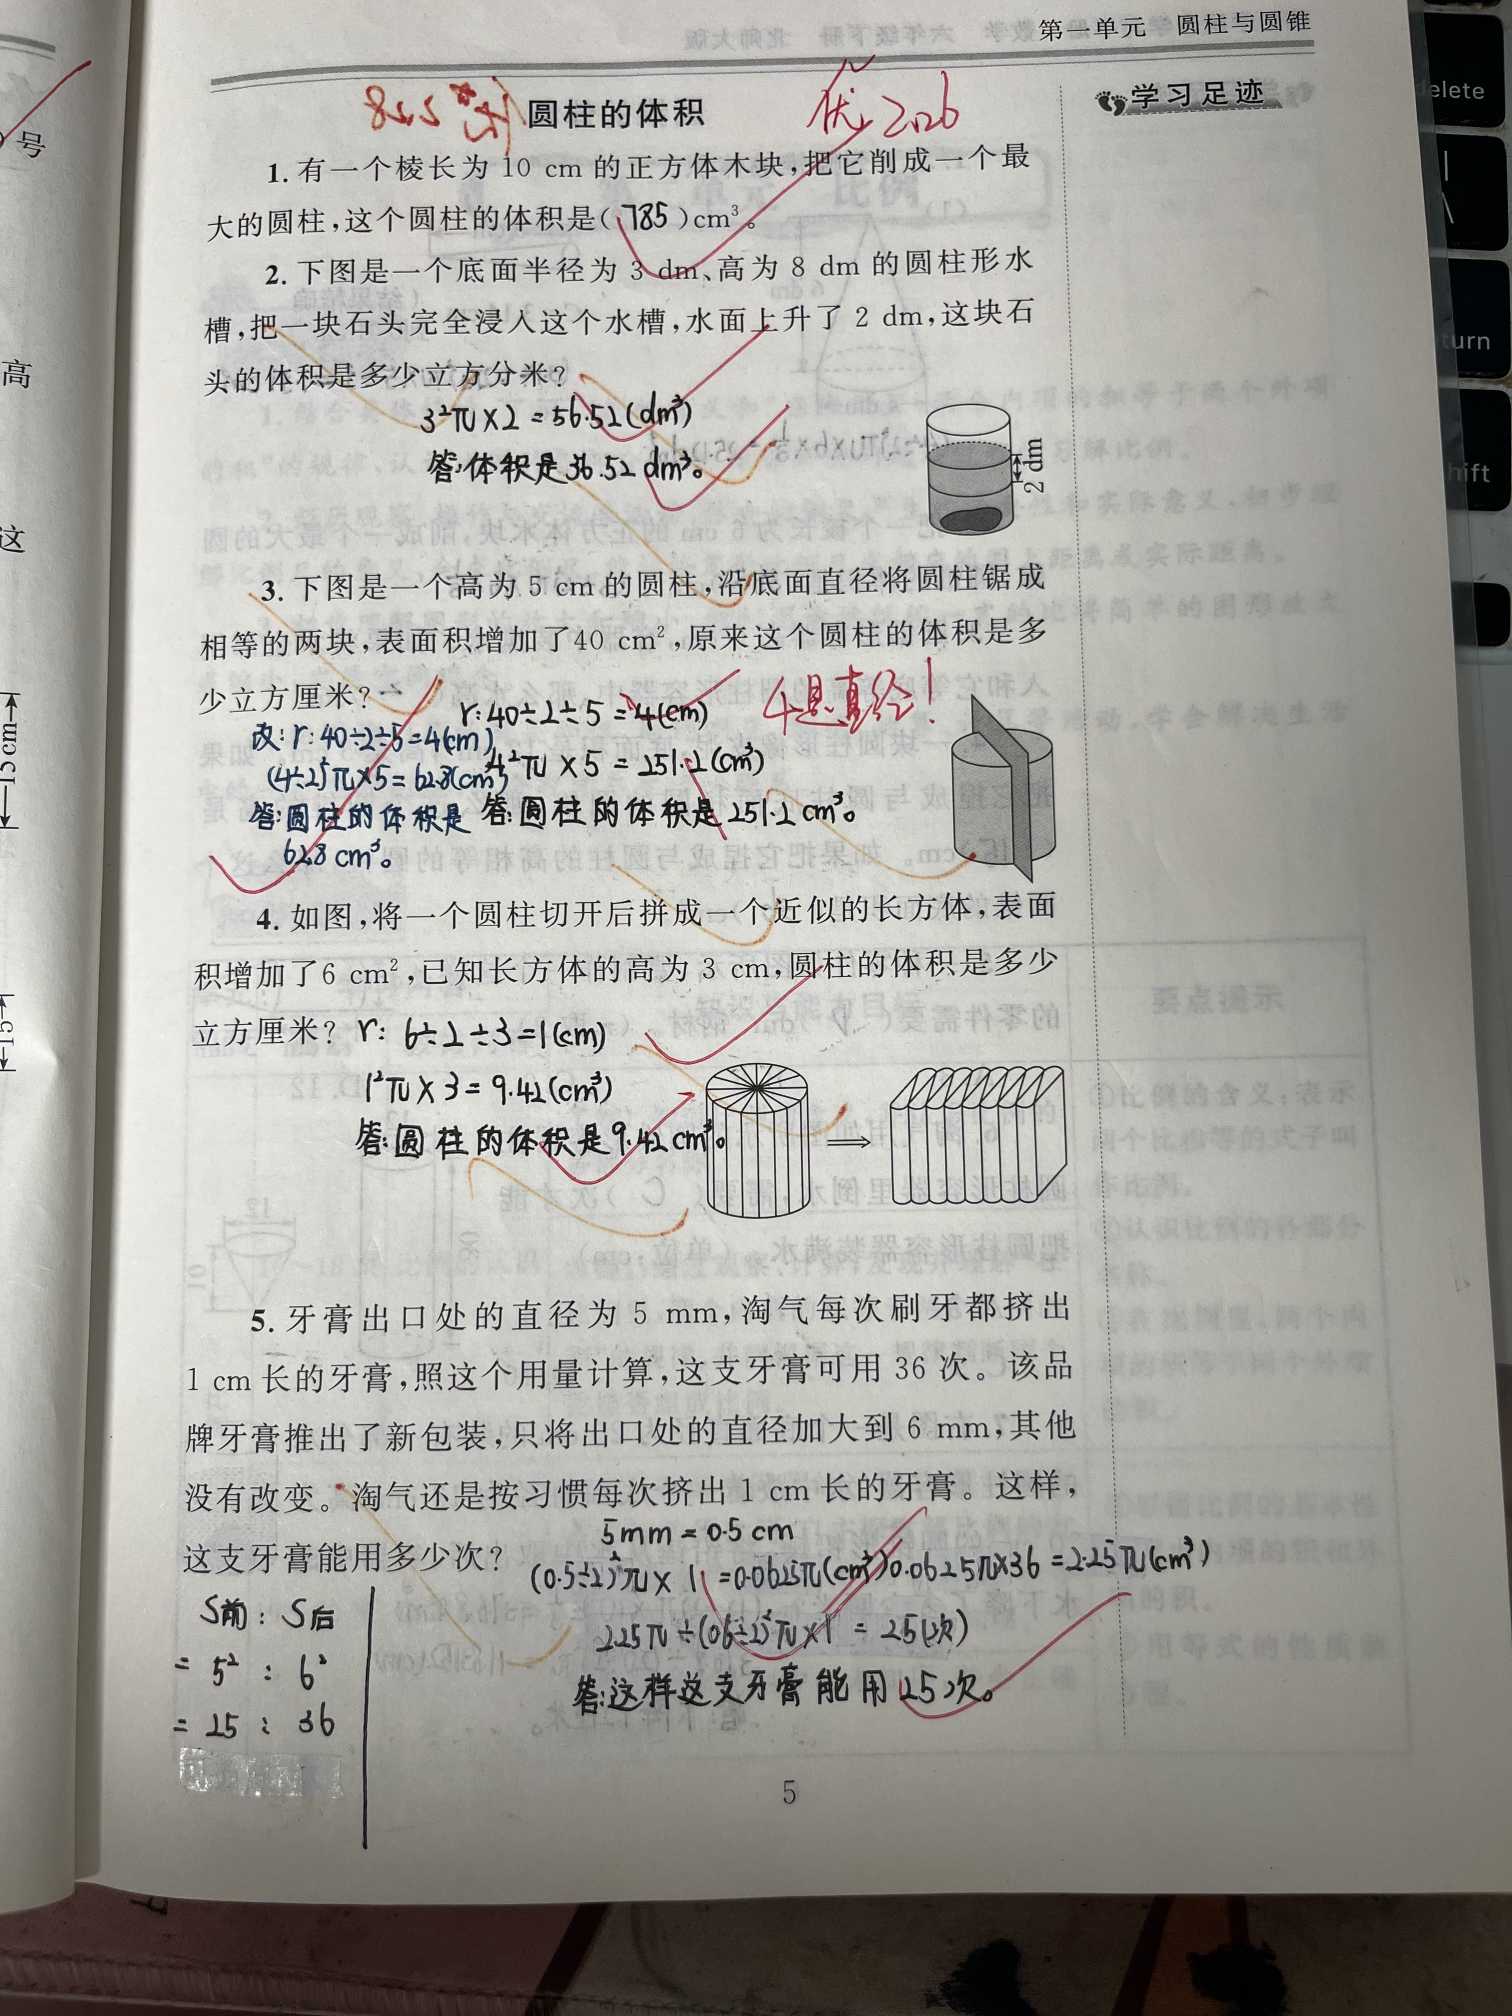 第一单元 圆柱与圆锥
学习足迹
圆柱的体积
优 2.26
1. 有一个棱长为 10 cm 的正方体木块,把它削成一个最
大的圆柱,这个圆柱的体积是(785)cm³。
2. 下图是一个底面半径为 3 dm、高为 8 dm 的圆柱形水
槽,把一块石头完全浸入这个水槽,水面上升了 2 dm,这块石
头的体积是多少立方分米?
3²π×2=56.52(dm³)
答:体积是36.52 dm³。
2 dm
3. 下图是一个高为 5 cm 的圆柱,沿底面直径将圆柱锯成
相等的两块,表面积增加了40 cm²,原来这个圆柱的体积是多
少立方厘米?
r:40÷2÷5=4(cm)
4是直径!
4²π×5=251.2(cm³)
答:圆柱的体积是251.2cm³。
改:r:40÷2÷5=4(cm)
(4÷2)²π×5=62.8(cm³)
答:圆柱的体积是
62.8 cm³。
4. 如图,将一个圆柱切开后拼成一个近似的长方体,表面
积增加了6 cm²,已知长方体的高为 3 cm,圆柱的体积是多少
立方厘米? r: 6÷2÷3=1(cm)
1²π×3=9.42(cm³)
答:圆柱的体积是9.42cm³。
5. 牙膏出口处的直径为 5 mm,淘气每次刷牙都挤出
1 cm 长的牙膏,照这个用量计算,这支牙膏可用 36 次。该品
牌牙膏推出了新包装,只将出口处的直径加大到 6 mm,其他
没有改变。淘气还是按习惯每次挤出 1 cm 长的牙膏。这样,
这支牙膏能用多少次?
5mm=0.5cm
(0.5÷2)²π×1=0.0625π(cm³) 0.0625π×36=2.25π(cm³)
2.25π÷(0.6÷2)²π×1=25(次)
答:这样这支牙膏能用25次。
S前:S后
=5²:6²
=25:36
5
号
高
这
15cm
15
delete
shift